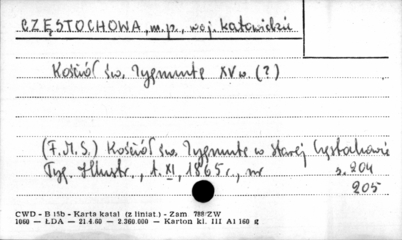 CZĘSTOCHOWA, m.p., woj. katowickie
Kościół św. Zygmunta XV w. (?)
(F.M.S.) Kościół św. Zygmunta w starej Częstochowie
Tyg. Illustr., t. XI, 1865 r., nr s. 204
205
CWD - B 15b - Karta katal (z liniat.) - Zam 788/ZW
1060 — ŁDA — 21.4.60 — 2.360.000 — Karton kl. III A1 160 g